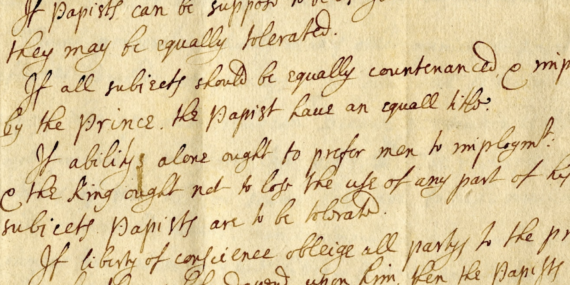 If Papists can be suppos'd to be
they may be equally tolerated.
If all subiects should be equally countenanced, & imp
by the Prince. the Papist have an equall title.
If abilitys alone ought to prefer men to imploymt.
& the King ought not to lose the use of any part of his
subiects. Papists are to be tolerated.
If liberty of conscience obleige all partys to the pr
depend upon him, then the Papists